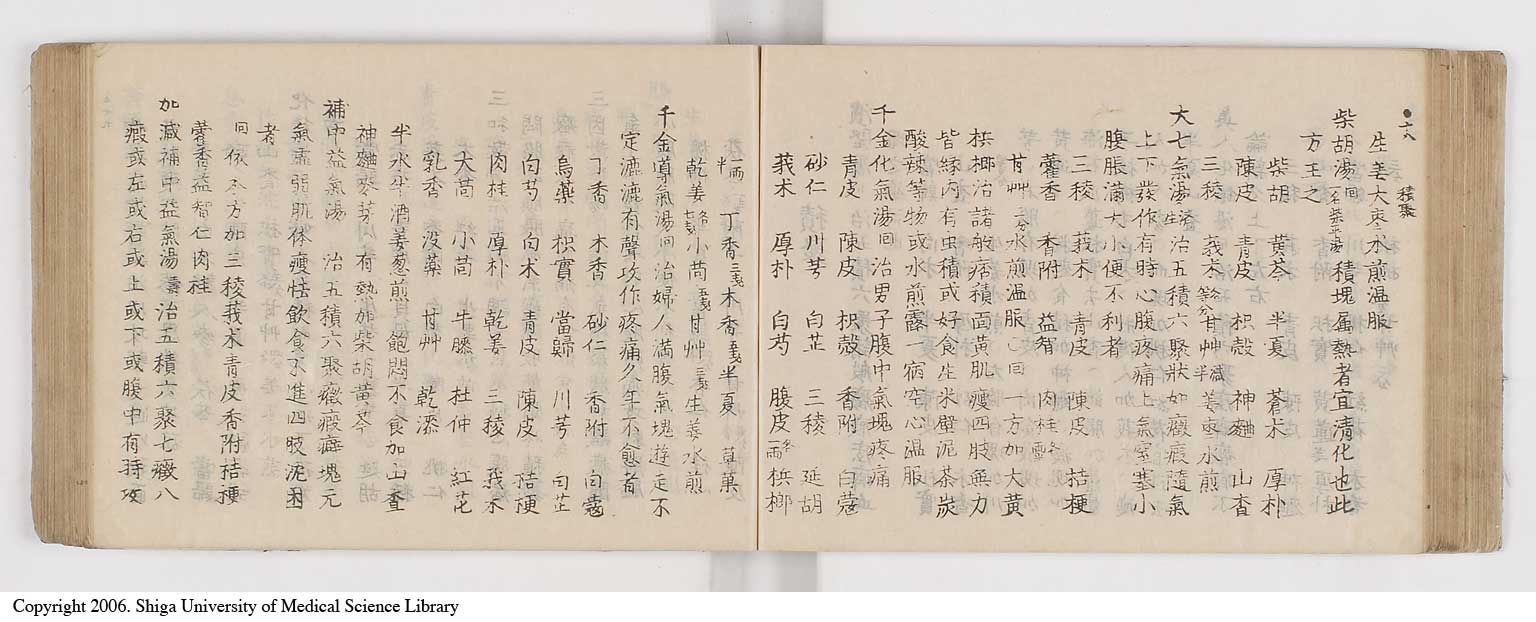 積聚
生姜大枣水煎温服
柴胡湯 回 積塊属熱者宜清化也此
方主之
柴胡 黄芩 半夏 蒼朮 厚朴
陳皮 青皮 枳殻 神麯 山査
三稜 莪朮 各等分 甘艸 减半 姜枣水煎
大七氣湯 治五積六聚狀如癥瘕隨氣
上下發作有時心腹疼痛上氣窒塞小
腹脹滿大小便不利者
三稜 莪朮 青皮 陳皮 桔梗
藿香 香附 益智 肉桂
甘艸 水煎温服〇回一方加大黄
梹榔治諸般痞積面黄肌瘦四肢無力
皆緣内有虫積或好食生米壁泥茶炭
酸辣等物或水煎露一宿空心温服
千金化氣湯 回 治男子腹中氣塊疼痛
青皮 陳皮 枳殻 香附 白蔲
砂仁 川芎 白芷 三稜 延胡
莪朮 厚朴 白芍 腹皮 梹榔
丁香 木香 半夏 草菓
乾姜 小茴 甘艸 生姜水煎
千金導氣湯 回 治婦人滿腹氣塊遊走不
定漉漉有聲攻作疼痛久年不愈者
丁香 木香 砂仁 香附 白蔲
烏藥 枳實 當歸 川芎 白芷
白芍 白朮 青皮 陳皮 桔梗
肉桂 厚朴 乾姜 三稜 莪朮
大茴 小茴 牛膝 杜仲 紅花
乳香 没藥 甘艸 乾漆
半水半酒姜葱煎飽悶不食加山査
神麯麥芽 有熱加柴胡黄芩
補中益氣湯 治五積六聚癥瘕癖塊元
氣虚弱肌体瘦怯飲食不進四肢泥困
者
回依本方加三稜莪朮青皮香附桔梗
藿香益智仁肉桂
加减補中益氣湯 壽 治五積六聚七癥八
瘕或左或右或上或下或腹中有持攻
Copyright 2006. Shiga University of Medical Science Library